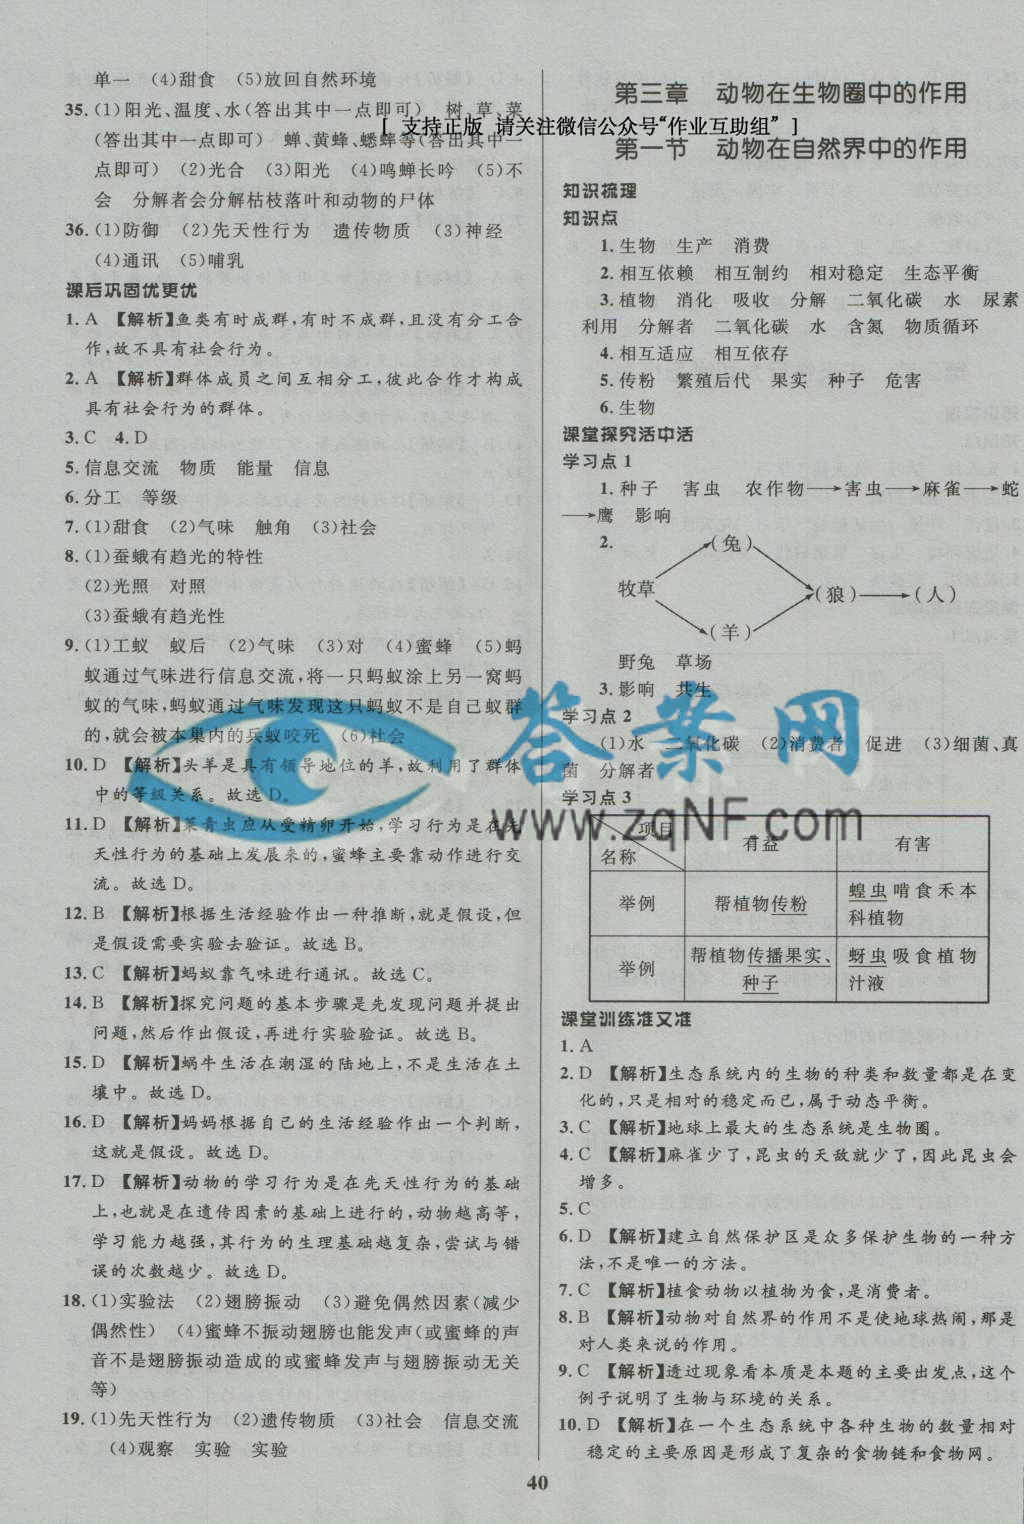 单一　(4)甜食　(5)放回自然环境
35. (1)阳光、温度、水(答出其中一点即可)　树、草、菜
(答出其中一点即可)　蝉、黄蜂、蟋蟀等(答出其中一
点即可)　(2)光合　(3)阳光　(4)鸣蝉长吟　(5)不
会　分解者会分解枯枝落叶和动物的尸体
36. (1)防御　(2)先天性行为　遗传物质　(3)神经
(4)通讯　(5)哺乳
课后巩固优更优
1. A 【解析】鱼类有时成群,有时不成群,且没有分工合
作,故不具有社会行为。
2. A 【解析】群体成员之间互相分工,彼此合作才构成
具有社会行为的群体。
3. C　4. D
5. 信息交流　物质　能量　信息
6. 分工　等级
7. (1)甜食　(2)气味　触角　(3)社会
8. (1)蚕蛾有趋光的特性
(2)光照　对照
(3)蚕蛾有趋光性
9. (1)工蚁　蚁后　(2)气味　(3)对　(4)蜜蜂　(5)蚂
蚁通过气味进行信息交流,将一只蚂蚁涂上另一窝蚂
蚁的气味,蚂蚁通过气味发现这只蚂蚁不是自己蚁群
的,就会被本巢内的兵蚁咬死　(6)社会
10. D 【解析】头羊是具有领导地位的羊,故利用了群体
中的等级关系。故选 D。
11. D 【解析】菜青虫应从受精卵开始,学习行为是在先
天性行为的基础上发展来的,蜜蜂主要靠动作进行交
流。故选 D。
12. B 【解析】根据生活经验作出一种推断,就是假设,但
是假设需要实验去验证。故选 B。
13. C 【解析】蚂蚁靠气味进行通讯。故选 C。
14. B 【解析】探究问题的基本步骤是先发现问题并提出
问题,然后作出假设,再进行实验验证。故选 B。
15. D 【解析】蜗牛生活在潮湿的陆地上,不是生活在土
壤中。故选 D。
16. D 【解析】妈妈根据自己的生活经验作出一个判断,
这就是假设。故选 D。
17. D 【解析】动物的学习行为是在先天性行为的基础
上,也就是在遗传因素的基础上进行的,动物越高等,
学习能力越强,其行为的生理基础越复杂,尝试与错
误的次数越少。故选 D。
18. (1)实验法　(2)翅膀振动　(3)避免偶然因素(减少
偶然性)　(4)蜜蜂不振动翅膀也能发声(或蜜蜂的声
音不是翅膀振动造成的或蜜蜂发声与翅膀振动无关
等)
19. (1)先天性行为　(2)遗传物质　(3)社会　信息交流
(4)观察　实验　实验
第三章　动物在生物圈中的作用
[ 支持正版 请关注微信公众号“作业互助组” ]
第一节　动物在自然界中的作用
知识梳理
知识点
1. 生物　生产　消费
2. 相互依赖　相互制约　相对稳定　生态平衡
3. 植物　消化　吸收　分解　二氧化碳　水　尿素
利用　分解者　二氧化碳　水　含氮　物质循环
4. 相互适应　相互依存
5. 传粉　繁殖后代　果实　种子　危害
6. 生物
课堂探究活中活
学习点 1
1. 种子　害虫　农作物→害虫→麻雀→蛇
→鹰　影响
2.
(兔)
牧草
(狼)→(人)
(羊)
野兔　草场
3. 影响　共生
学习点 2
(1)水　二氧化碳　(2)消费者　促进　(3)细菌、真
菌　分解者
学习点 3
项目
名称
有益
有害
举例
帮植物传粉
蝗虫啃食禾本
科植物
举例
帮植物传播果实、
种子
蚜虫吸食植物
汁液
答案网
www.zqNF.com
课堂训练准又准
1. A
2. D 【解析】生态系统内的生物的种类和数量都是在变
化的,只是相对的稳定而已,属于动态平衡。
3. C 【解析】地球上最大的生态系统是生物圈。
4. C 【解析】麻雀少了,昆虫的天敌就少了,因此昆虫会
增多。
5. C
6. D 【解析】建立自然保护区是众多保护生物的一种方
法,不是唯一的方法。
7. C 【解析】植食动物以植物为食,是消费者。
8. B 【解析】动物对自然界的作用不是使地球热闹,那是
对人类来说的作用。
9. C 【解析】透过现象看本质是本题的主要出发点,这个
例子说明了生物与环境的关系。
10. D 【解析】在一个生态系统中各种生物的数量相对
稳定的主要原因是形成了复杂的食物链和食物网。
40